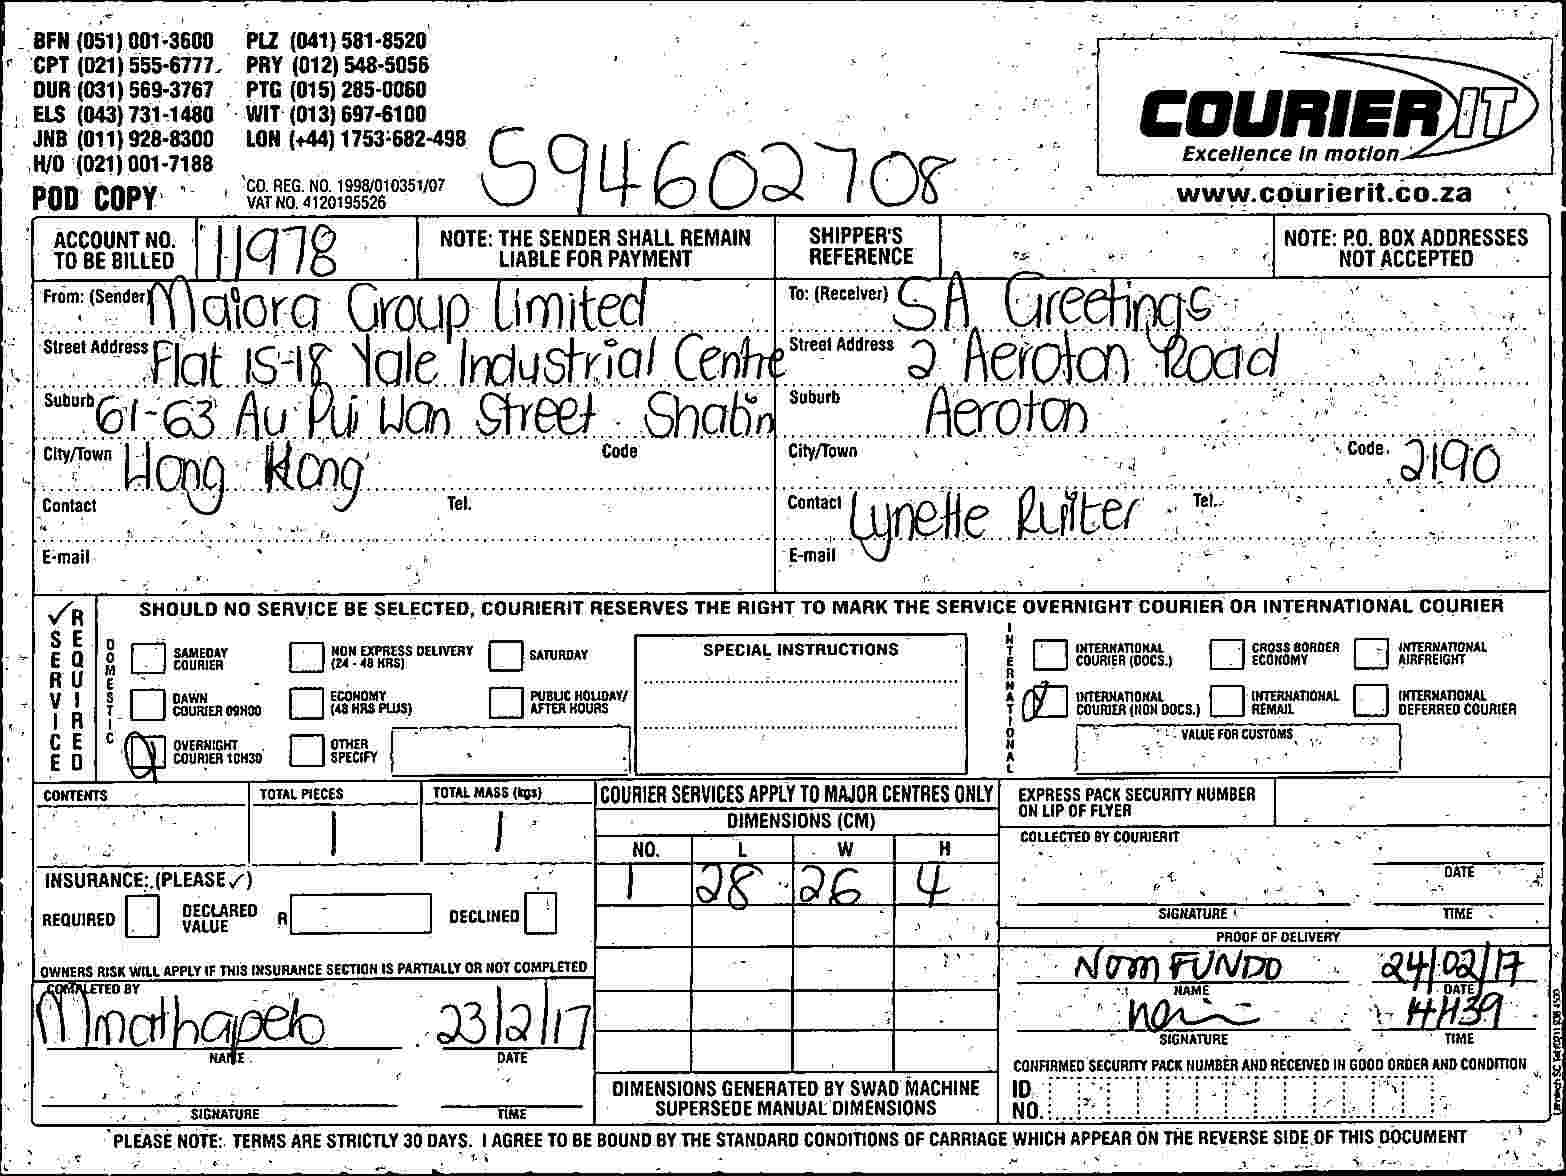 BFN (051) 001-3600 PLZ (041) 581-8520
CPT (021) 555-6777 PRY (012) 548-5056
DUR (031) 569-3767 PTG (015) 285-0060
ELS (043) 731-1480 WIT (013) 697-6100
JNB (011) 928-8300 LON (+44) 1753-682-498
H/O (021) 001-7188
POD COPY
CO. REG. NO. 1998/010351/07
VAT NO. 4120195526
594602708
COURIER IT
Excellence in motion
www.courierit.co.za
ACCOUNT NO. TO BE BILLED 11978
NOTE: THE SENDER SHALL REMAIN LIABLE FOR PAYMENT
SHIPPER'S REFERENCE
NOTE: P.O. BOX ADDRESSES NOT ACCEPTED
From: (Sender) Majora Group Limited
Street Address Flat 15-18 Yale Industrial Centre
Suburb 61-63 Au Pui Wan Street Shatin
City/Town Hong Kong Code
Contact Tel.
E-mail
To: (Receiver) SA Greetings
Street Address 2 Aeroton Road
Suburb Aeroton
City/Town Code 2190
Contact Lynette Ruiter Tel.
E-mail
SERVICE REQUIRED
SHOULD NO SERVICE BE SELECTED, COURIERIT RESERVES THE RIGHT TO MARK THE SERVICE OVERNIGHT COURIER OR INTERNATIONAL COURIER
DOMESTIC
SAMEDAY COURIER
NON EXPRESS DELIVERY (24 - 48 HRS)
SATURDAY
DAWN COURIER 09H00
ECONOMY (48 HRS PLUS)
PUBLIC HOLIDAY/ AFTER HOURS
OVERNIGHT COURIER 10H30
OTHER SPECIFY
SPECIAL INSTRUCTIONS
INTERNATIONAL
INTERNATIONAL COURIER (DOCS.)
CROSS BORDER ECONOMY
INTERNATIONAL AIRFREIGHT
INTERNATIONAL COURIER (NON DOCS.)
INTERNATIONAL REMAIL
INTERNATIONAL DEFERRED COURIER
VALUE FOR CUSTOMS
CONTENTS
TOTAL PIECES 1
TOTAL MASS (kgs) 1
INSURANCE: (PLEASE ✓)
REQUIRED DECLARED VALUE R DECLINED
OWNERS RISK WILL APPLY IF THIS INSURANCE SECTION IS PARTIALLY OR NOT COMPLETED
COMPLETED BY
Mmathapelo 23/2/17
NAME DATE
SIGNATURE TIME
COURIER SERVICES APPLY TO MAJOR CENTRES ONLY
DIMENSIONS (CM)
NO. L W H
1 28 26 4
DIMENSIONS GENERATED BY SWAD MACHINE
SUPERSEDE MANUAL DIMENSIONS
EXPRESS PACK SECURITY NUMBER ON LIP OF FLYER
COLLECTED BY COURIERIT
DATE
SIGNATURE TIME
PROOF OF DELIVERY
NOMFUNDO 24/02/17
NAME DATE
SIGNATURE TIME
CONFIRMED SECURITY PACK NUMBER AND RECEIVED IN GOOD ORDER AND CONDITION
ID NO.
PLEASE NOTE: TERMS ARE STRICTLY 30 DAYS. I AGREE TO BE BOUND BY THE STANDARD CONDITIONS OF CARRIAGE WHICH APPEAR ON THE REVERSE SIDE OF THIS DOCUMENT